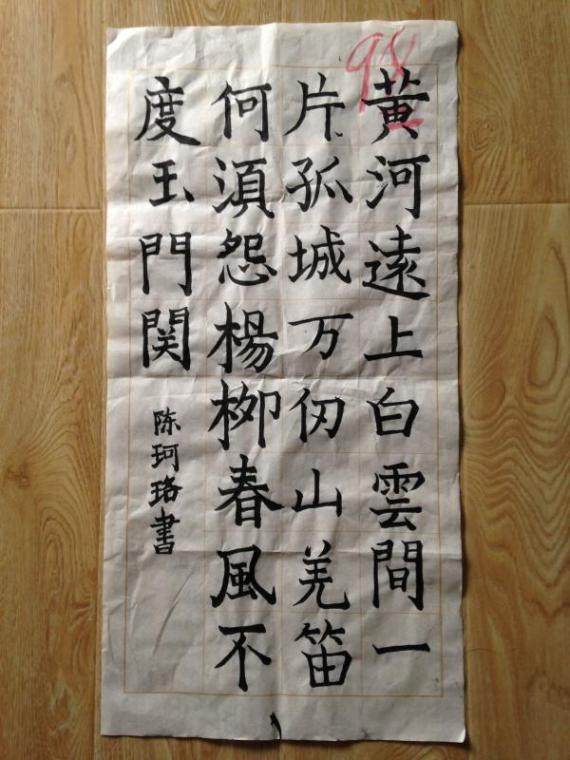 98
黄河遠上白雲間一
片孤城万仞山羌笛
何湏怨楊柳春風不
度玉門関
陈珂珞書